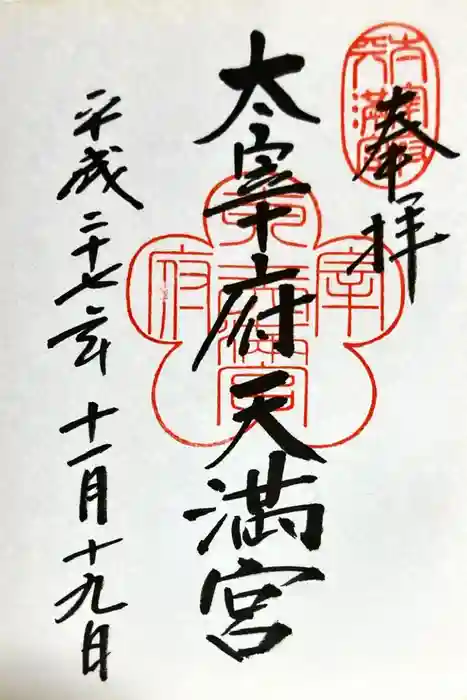 奉拝
太宰府天満宮
平成二十七年 十一月十九日